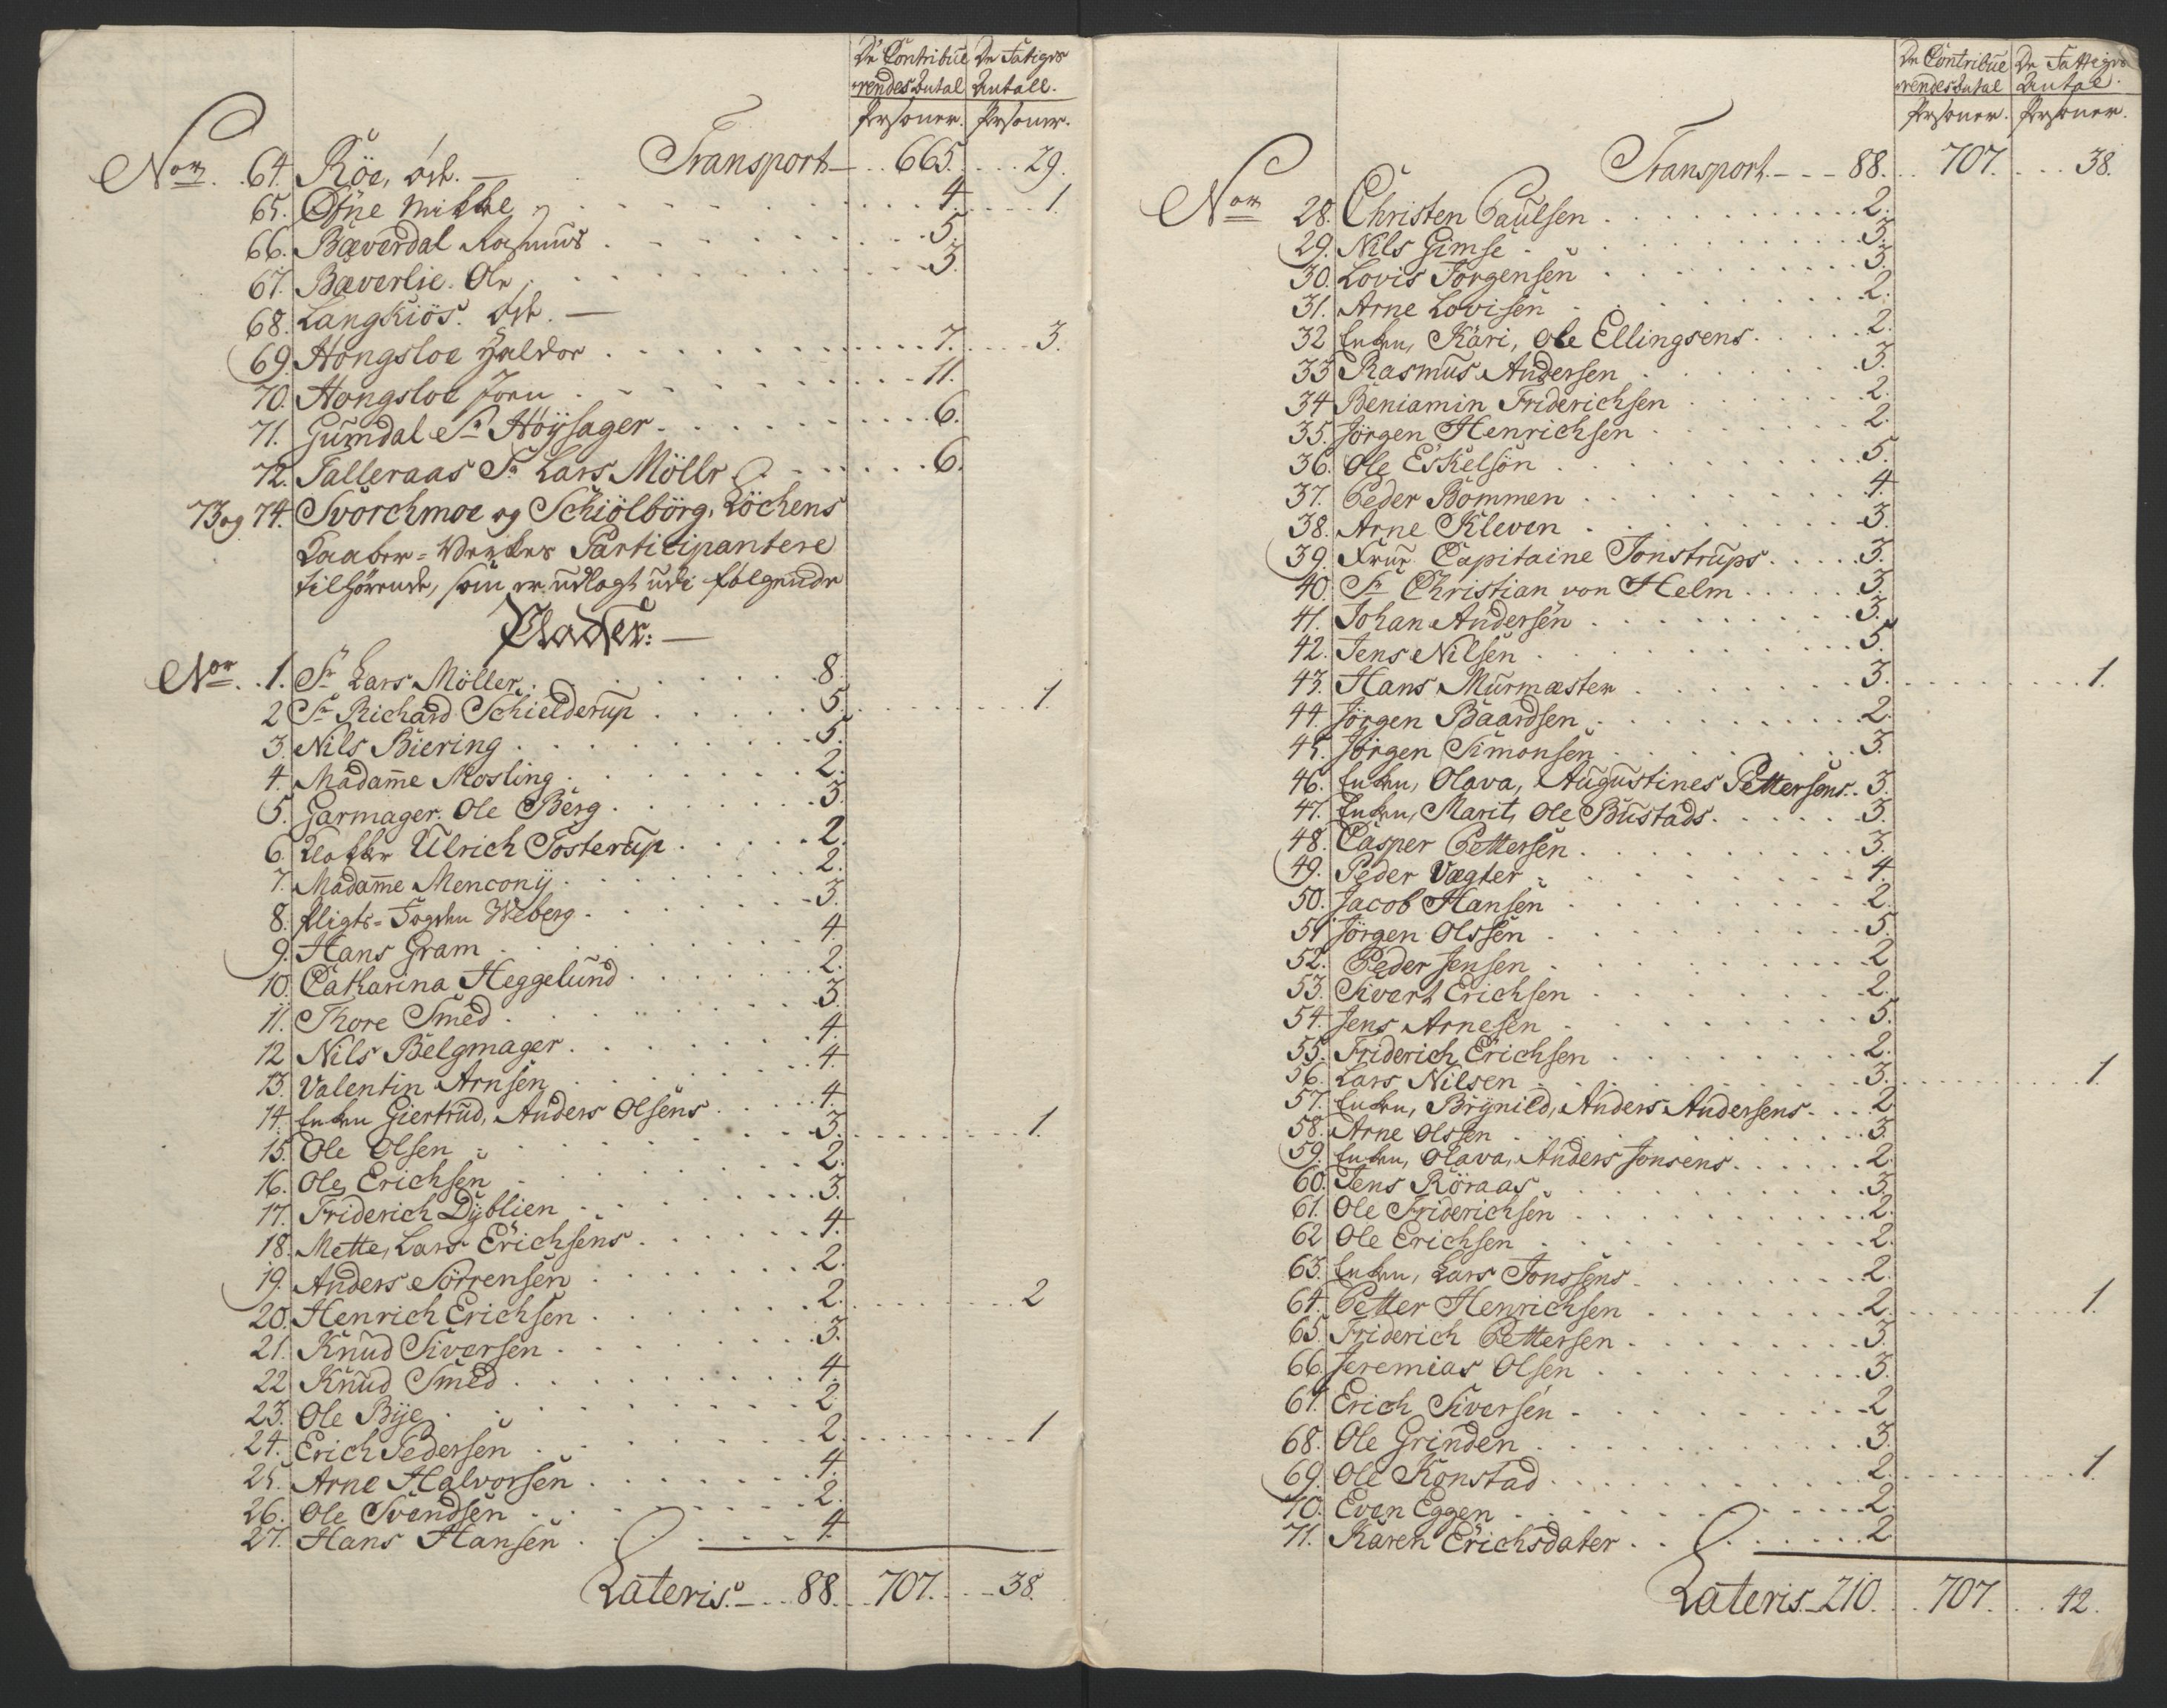 De Contribue De Fatiges
rendes Antal Antall.
Personer. Personer.
Transport 665. 29.
No 64. Röe, öde.
65. Ofne Mikkel 4. 1.
66. Bæverdal Rasmus 5.
67. Bæverlie. Ole 3.
68. Langkiös. öde.
69. Hongsloe Haldor 7. 3.
70. Hongsloe Joen 11.
71. Gumdal Sr Höysager 6.
72. Talleraas Sr Lars Möllr 6.
73 og 74. Svorchmoe og Schiölbörg, Löchens
Kaaber-Verkes Participantere
tilhörende, som er udlagt udi følgende
Pladser:
No 1. Sr Lars Möller 8.
2 Sr Richard Schielderup 5. 1.
3. Nils Biering 5.
4. Madame Mosling 2.
5. Garmager Ole Berg 3.
6. Klokker Ulrich Tosterup 2.
7. Madame Menconÿ 2.
8. Pligts-Fogden Weberg 3.
9. Hans Gram 4.
10. Catharina Heggelund 2.
11. Thore Smed 3.
12 Nils Belgmager 4.
13. Valentin Arnsen 4.
14. Enken Giertrud, Anders Olsens 4.
15. Ole Olsen 3. 1.
16. Ole Erichsen 2.
17. Friderich Dÿblien 3.
18. Mette, Lars Erichsens 4.
19. Anders Sörrensen 2.
20. Henrich Erichsen 2. 2
21. Knud Siversen 3.
22 Knud Smed 4.
23. Ole Bÿe 2.
24. Erich Pedersen 2. 1
25. Arne Halvorsen 4.
26. Ole Svendsen 2.
27. Hans Hansen 4.
Lateris. 88. 707. 38.
De Contribue De Fattiges
rendes Antal Antal.
Personer. Personer.
Transport. 88. 707. 38.
No 28. Christen Paulsen 2.
29. Nils Gimse 3.
30. Lovis Jörgensen 3.
31. Arne Lovisen 2.
32 Enken, Kari, Ole Ellingsens 2.
33 Rasmus Andersen 3.
34 Beniamin Friderichsen 2.
35. Jörgen Henrichsen 2.
36. Ole Eskelsön 5.
37. Peder Bommen 4.
38. Arne Kleven 3.
39. Frue Capitaine Jonstrups 3.
40. Sr Christian von Helm 3.
41. Johan Andersen 3.
42. Jens Nilsen 5.
43. Hans Murmæster 3. 1.
44. Jörgen Baardsen 2.
45. Jörgen Simonsen 3.
46. Enken, Olava, Augustines Pettersens 3.
47. Enken, Marit, Ole Bustads 3.
48. Casper Pettersen 3.
49. Peder Vægter 4.
50. Jacob Hansen 2.
51 Jörgen Olssen 5.
52. Peder Jensen 2
53. Sivert Erichsen 2.
54. Jens Arnesen 5.
55. Friderich Erichsen 2.
56. Lars Nilsen 3. 1.
57. Enken, Brÿnild, Anders Andersens 2
58. Arne Olssen 3.
59. Enken, Olava, Anders Jonsens 2.
60. Jens Röraas 3.
61. Ole Friderichsen 2.
62 Ole Erichsen 2.
63. Enken, Lars Jonssens 2.
64. Petter Henrichsen 2. 1.
65. Friderich Pettersen 3.
66. Jeremias Olsen 3.
67. Erich Siversen 2
68. Ole Grinden 3.
69. Ole Konstad 2. 1.
70. Even Eggen 2.
71. Karen Erichsdater 2
Lateris 210. 707. 42.